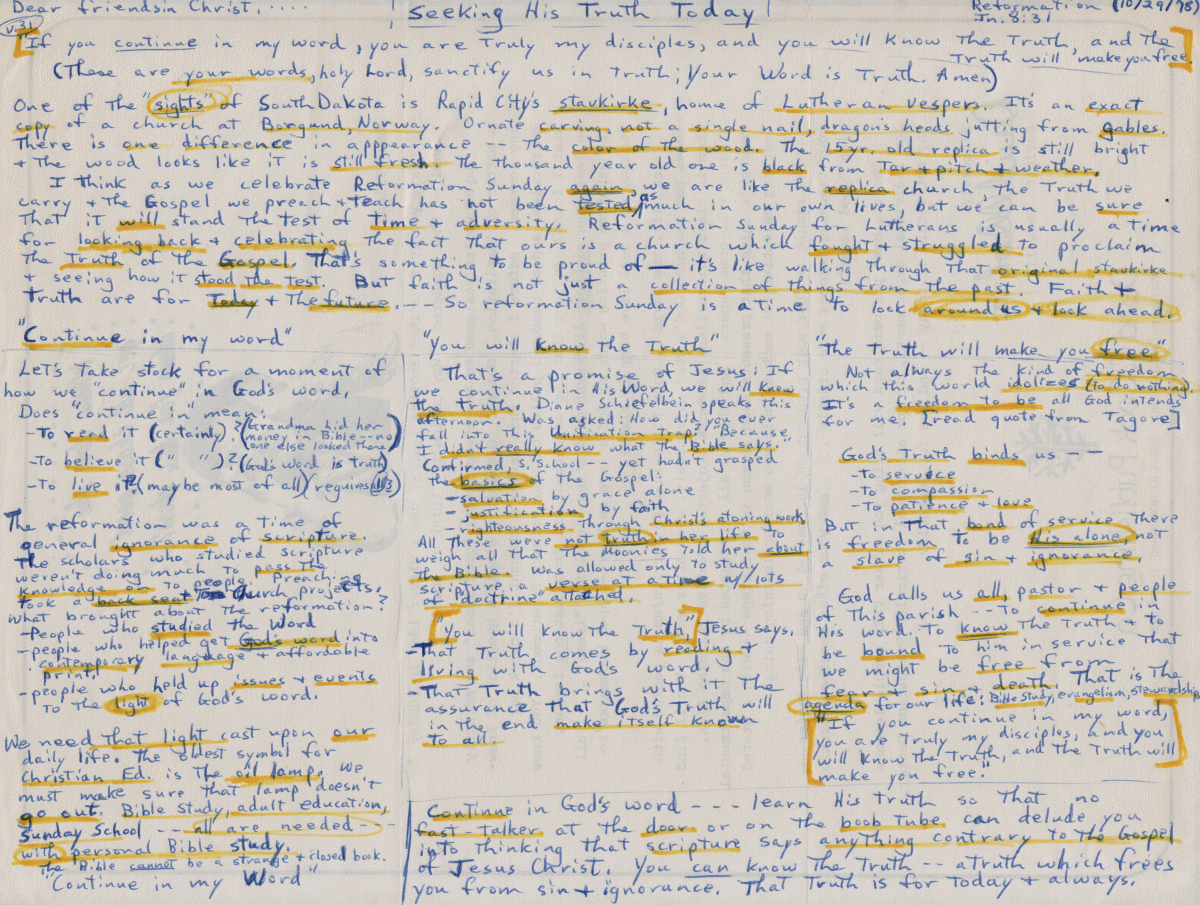 Dear friends in Christ, .... Seeking His Truth Today Reformation (10/29/78)
Jn. 8:31
v.31
"If you continue in my word, you are Truly my disciples, and you will know The Truth, and The
Truth will make you free.
(These are your words, holy Lord, sanctify us in Truth; Your Word is Truth. Amen)
One of The "sights" of South Dakota is Rapid City's stavkirke, home of Lutheran Vespers. It's an exact
copy of a church at Borgund, Norway. Ornate carving, not a single nail, dragon's heads jutting from gables.
There is one difference in apppearance -- The color of the wood. The 15 yr. old replica is still bright
+ The wood looks like it is still fresh. The thousand year old one is black from Tar + pitch + weather.
I Think as we celebrate Reformation Sunday again, we are like The replica church. The Truth we
carry + The Gospel we preach + teach has not been Tested as much in our own lives, but we can be sure
That it will stand The test of Time + adversity. Reformation Sunday for Lutherans is usually a time
for looking back + celebrating The fact That ours is a church which fought + struggled to proclaim
The Truth of The Gospel. That's something to be proud of — it's like walking Through That original stavkirke
+ seeing how it stood The test. But faith is not just a collection of things from The past. Faith +
Truth are for Today + The future. --- So reformation Sunday is a time to look around us + look ahead.
"Continue in my word"
Let's Take stock for a moment of
how we "continue" in God's word,
Does "continue in" mean:
-To read it (certainly)? (Grandma hid her
money in Bible -- no
one else looked There)
-To believe it (" ")? (God's Word is Truth)
-To live it? (maybe most of all) (requires 1+2)
The reformation was a Time of
general ignorance of scripture.
The scholars who studied scripture
weren't doing much to pass The
knowledge on To people. Preaching
took a back seat To church projects.
What brought about The reformation?
-People who studied The Word
-people who helped get God's word into
contemporary language + affordable
print.
-people who held up issues + events
To The light of God's word.
We need That light cast upon our
daily life. The oldest symbol for
Christian Ed. is The oil lamp. We
must make sure That lamp doesn't
go out. Bible Study, adult education,
Sunday School -- all are needed --
with personal Bible study.
The Bible cannot be a strange + closed book.
"Continue in my Word"
"You will know The Truth"
That's a promise of Jesus: If
we continue in His Word, we will know
The Truth. Diane Schiefelbein speaks This
afternoon. Was asked: How did you ever
fall into This Unification Trap? "Because
I didn't really know what The Bible says."
Confirmed, S. School -- yet hadn't grasped
The basics of The Gospel:
-salvation by grace alone
-justification by faith
-righteousness Through Christ's atoning work
All These were not Truth in her life To
weigh all That The Moonies Told her about
The Bible. Was allowed only to study
scripture a verse at a Time w/lots
of "doctrine" attached.
"You will know The Truth," Jesus says.
-That Truth comes by reading +
living with God's word.
-That Truth brings with it The
assurance That God's Truth will
in The end make itself known
To all.
"The Truth will make you free"
Not always The kind of freedom
which This world idolizes (to do nothing).
It's a freedom to be all God intends
for me. [read quote from Tagore]
God's Truth binds us --
-To service
-To compassion
-To patience + love
But in That bond of service There
is freedom To be His alone, not
a slave of sin + ignorance.
God calls us all, pastor + people
of This parish -- To continue in
His word. To know The Truth + to
be bound To him in service That
we might be free from
fear + sin + death. That is The
agenda for our life: Bible Study, evangelism, stewardship
"If you continue in my word,
you are Truly my disciples, and you
will know The Truth, and The Truth will
make you free."
Continue in God's word --- learn His Truth so That no
fast-talker at The door or on The boob Tube can delude you
into Thinking That scripture says anything contrary to The Gospel
of Jesus Christ. You can know The Truth -- a Truth which frees
you from sin + ignorance. That Truth is for Today + always.